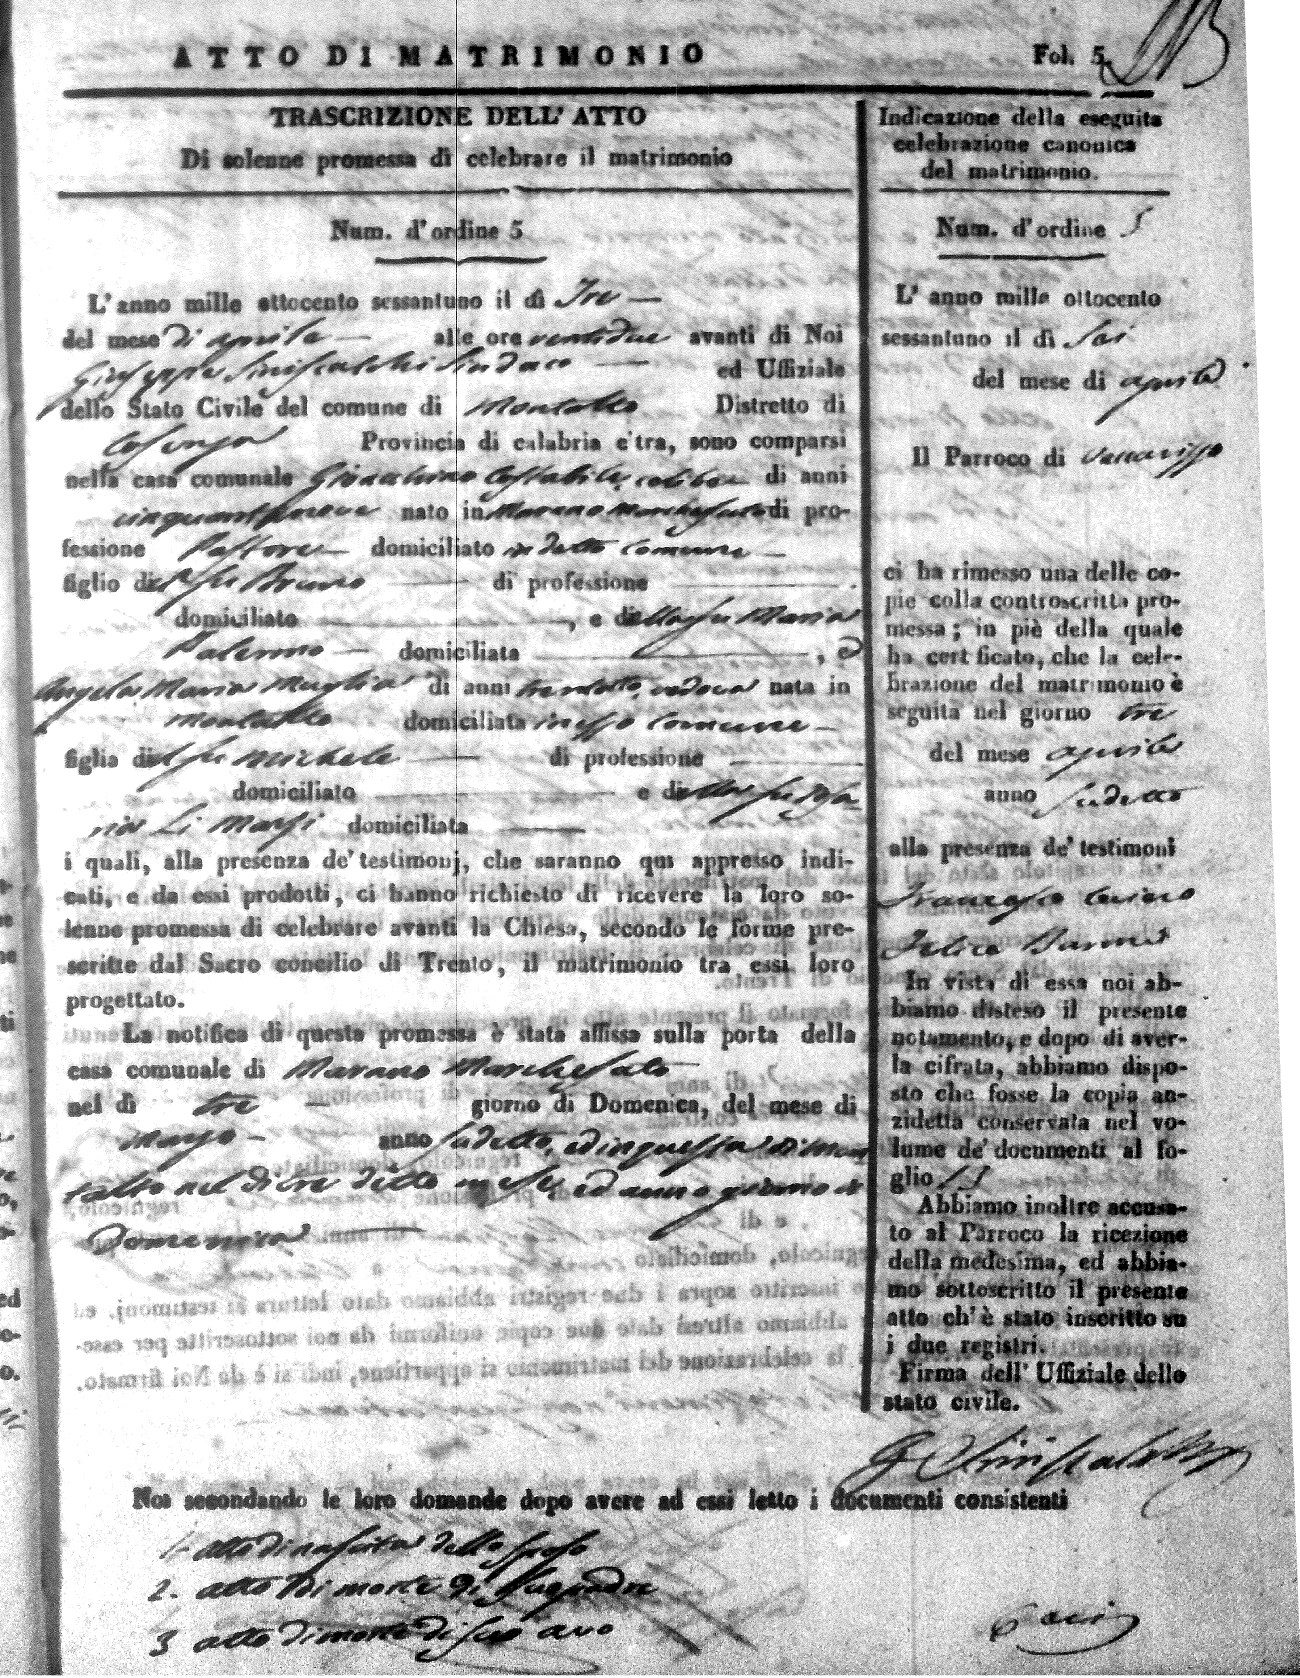 ATTO DI MATRIMONIO
Fol. 5.
TRASCRIZIONE DELL' ATTO
Di solenne promessa di celebrare il matrimonio
Num. d'ordine 5
L'anno mille ottocento sessantuno il dì Tre —
del mese di aprile — alle ore ventidue avanti di Noi
Giuseppe Siniscalchi Sindaco — ed Uffiziale
dello Stato Civile del comune di Montalto Distretto di
Cosenza Provincia di calabria citra, sono comparsi
nella casa comunale Gioacchino Costabile, celibe di anni
cinquantanove nato in Marano Marchesato di pro-
fessione Pastore — domiciliato in detto comune —
figlio del fu Bruno — di professione — .
domiciliato — , e della fu Maria
Palermo — domiciliata — , e
Angela Maria Muglia di anni trentotto, vedova nata in
Montalto domiciliata in esso comune —
figlia del fu Michele — di professione —
domiciliato — e della fu Rosa-
ria Li Marzi domiciliata —
i quali, alla presenza de' testimonj, che saranno qui appresso indi-
cati, e da essi prodotti, ci hanno richiesto di ricevere la loro so-
lenne promessa di celebrare avanti la Chiesa, secondo le forme pre-
scritte dal Sacro concilio di Trento, il matrimonio tra essi loro
progettato.
La notifica di questa promessa è stata affissa sulla porta della
casa comunale di Marano Marchesato
nel dì tre — giorno di Domenica, del mese di
Marzo — anno sudetto, ed in questa di Mon
talto nel dì tre detto mese, ed anno giorno di
Domenica —
Indicazione della eseguita
celebrazione canonica
del matrimonio.
Num. d'ordine 5
L' anno mille ottocento
sessantuno il dì Sei
del mese di aprile
Il Parroco di Vaccarizzo
ci ha rimesso una delle co-
pie colla controscritta pro-
messa; in piè della quale
ha certificato, che la cele-
brazione del matrimonio è
seguita nel giorno tre
del mese aprile
anno sudetto
alla presenza de' testimoni
Francesco
Felice
In vista di essa noi ab-
biamo disteso il presente
notamento, e dopo di aver-
la cifrata, abbiamo dispo-
sto che fosse la copia an-
zidetta conservata nel vo-
lume de' documenti al fo-
glio 13
Abbiamo inoltre accusa-
to al Parroco la ricezione
della medesima, ed abbia-
mo sottoscritto il presente
atto ch' è stato inscritto su
i due registri.
Firma dell' Uffiziale dello
stato civile.
G Siniscalchi
Noi secondando le loro domande dopo avere ad essi letto i documenti consistenti
1- atto di nascita dello sposo
2- atto di morte di suo padre
3 atto di morte di suo avo